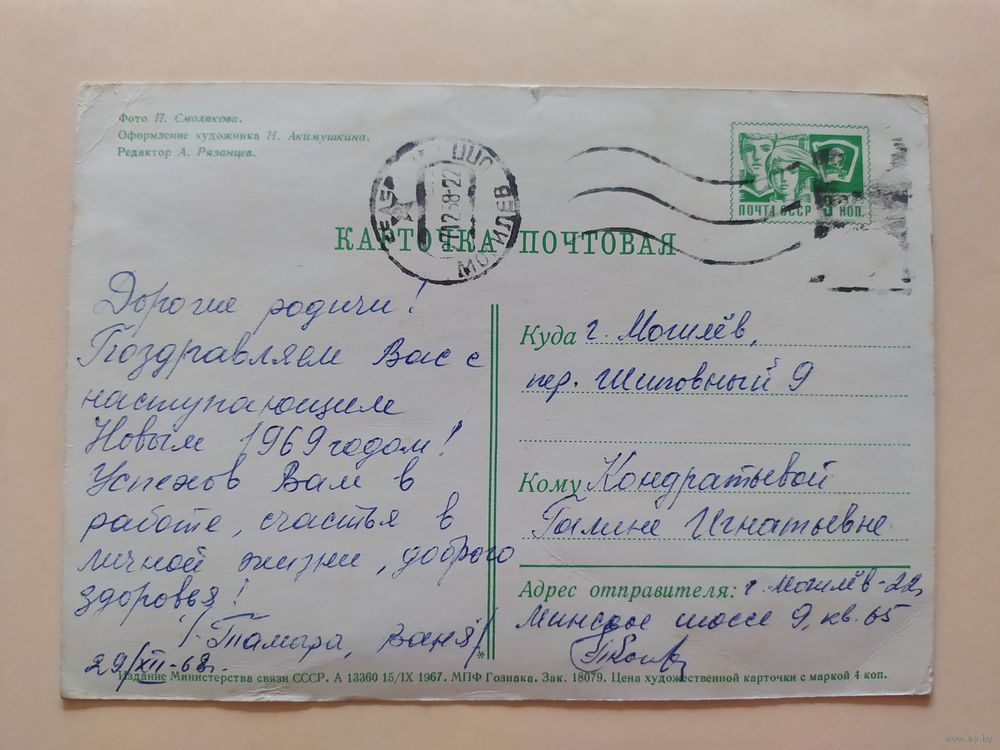 Фото П. Смолякова.
Оформление художника Н. Акимушкина.
Редактор А. Рязанцев.
ПОЧТА СССР 3 КОП.
МОГИЛЕВ
КАРТОЧКА ПОЧТОВАЯ
Дорогие родичи!
Поздравляем Вас с
наступающим
Новым 1969 годом!
Успехов Вам в
работе, счастья в
личной жизни, доброго
здоровья!
/Тамара, Ваня/
29/XII-68г.
Куда г. Могилёв,
пер. Шиповный 9
Кому Кондратьевой
Галине Игнатьевне
Адрес отправителя: г. Могилёв-22,
Минское шоссе 9, кв. 65
*
Издание Министерства связи СССР. А 13360 15/IX 1967. МПФ Гознака. Зак. 18079. Цена художественной карточки с маркой 4 коп.
www.ay.by